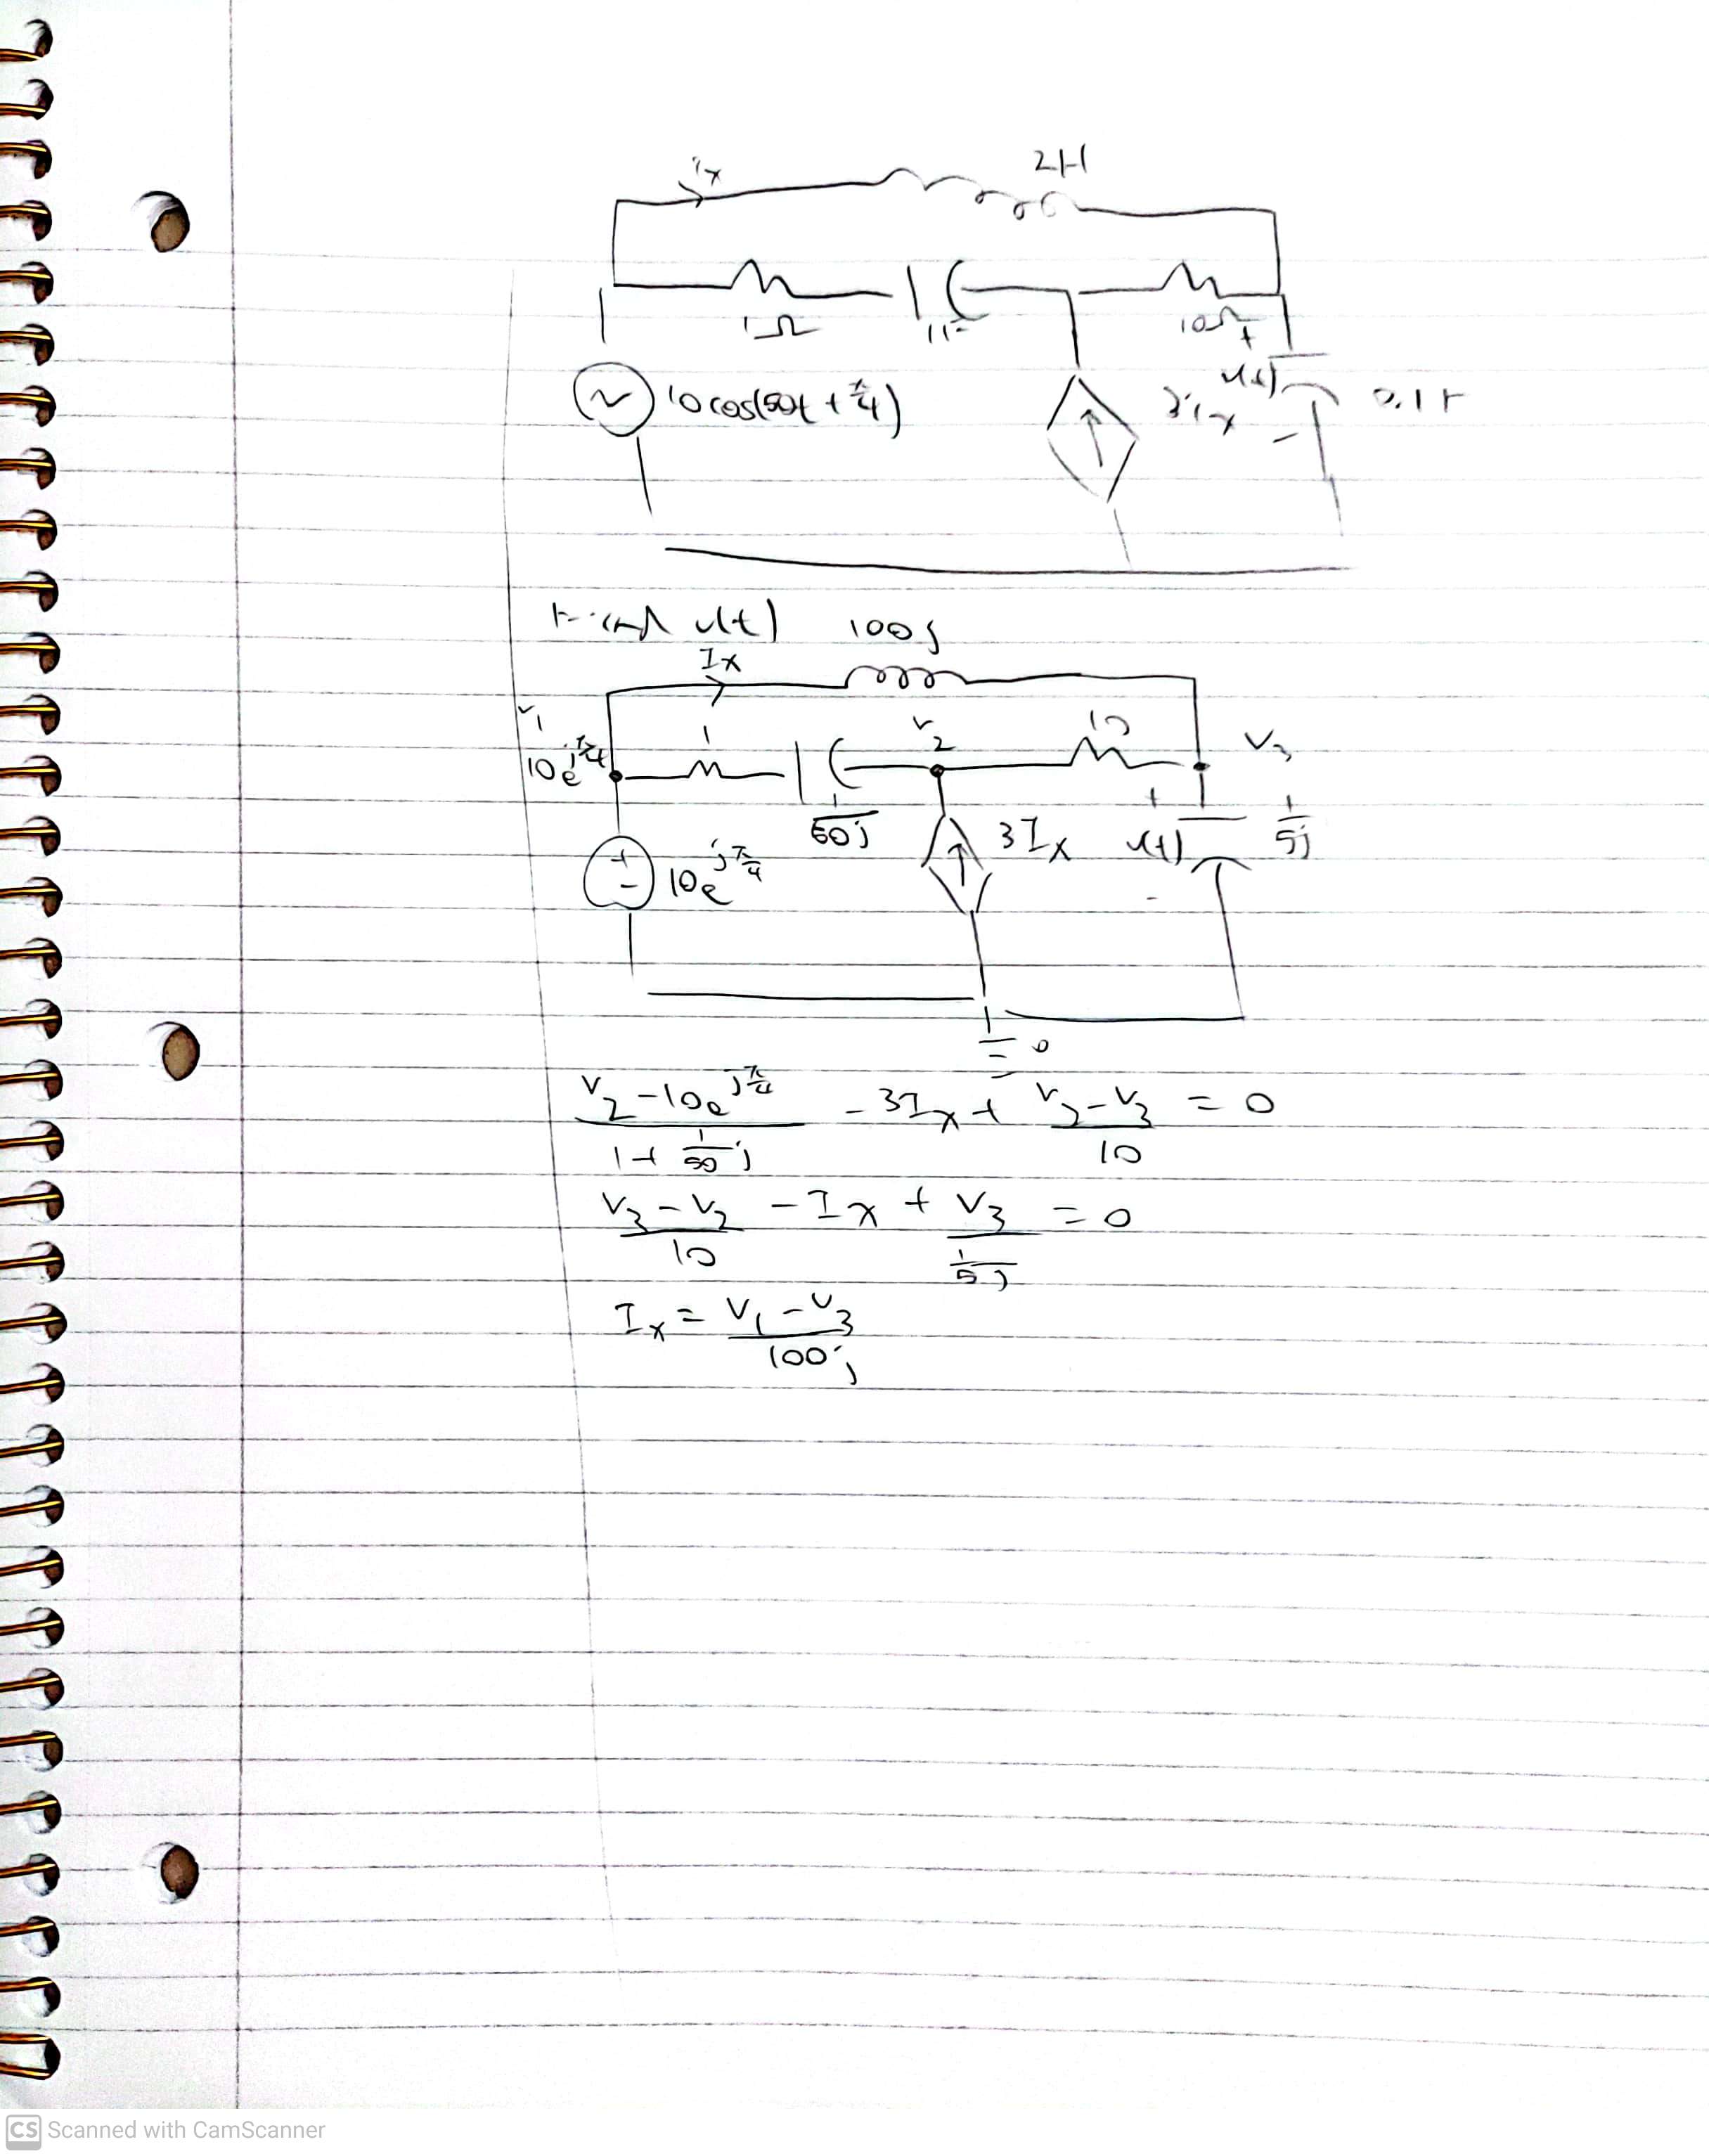 ix 2H
1Ω 1F 10Ω +
10cos(50t + π/4) 3ix v(t) 0.1F
-
Find v(t) 100j
Ix
V1 1 V2 10 V3
10e^{jπ/4}
1/50j + 1/5j
+ - 10e^{jπ/4} 3Ix v(t)
-
0
(V2 - 10e^{jπ/4})/(1 + 1/50j) - 3Ix + (V2 - V3)/10 = 0
(V3 - V2)/10 - Ix + V3/(1/5j) = 0
Ix = (V1 - V3)/100j
CS Scanned with CamScanner